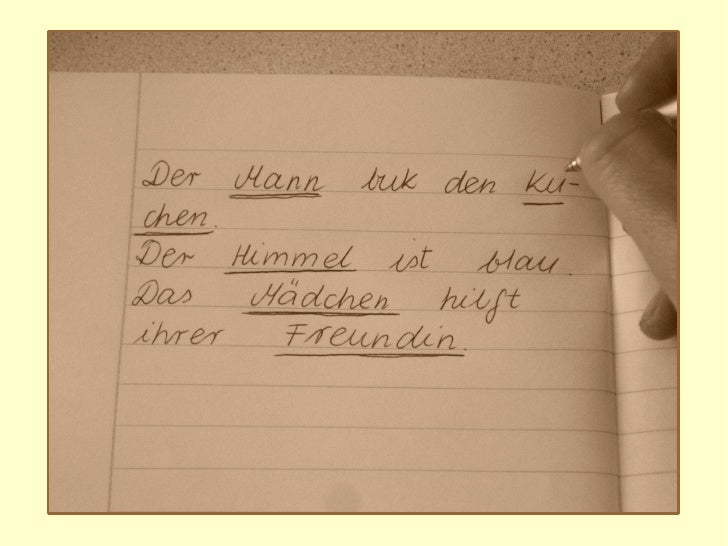 Der Mann buk den Ku-
chen.
Der Himmel ist blau.
Das Mädchen hilft
ihrer Freundin.